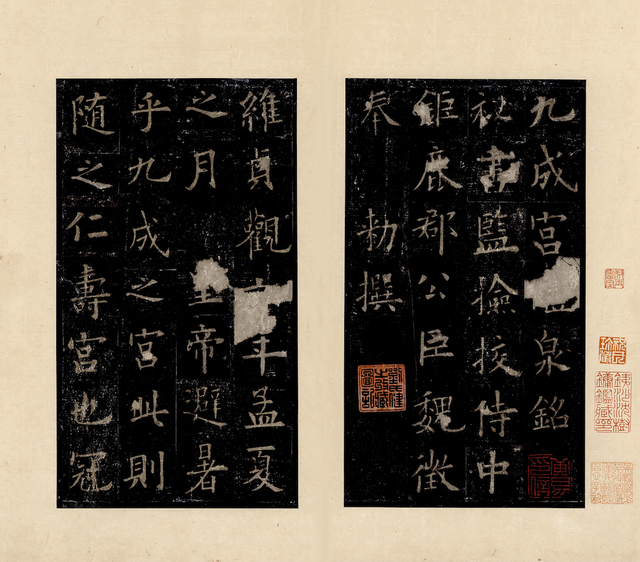 九成宮泉銘
秘書監撿挍侍中
鉅鹿郡公臣魏徵
奉 勅撰
維貞觀年孟夏
之月 皇帝避暑
乎九成之宮此則
随之仁壽宮也冠